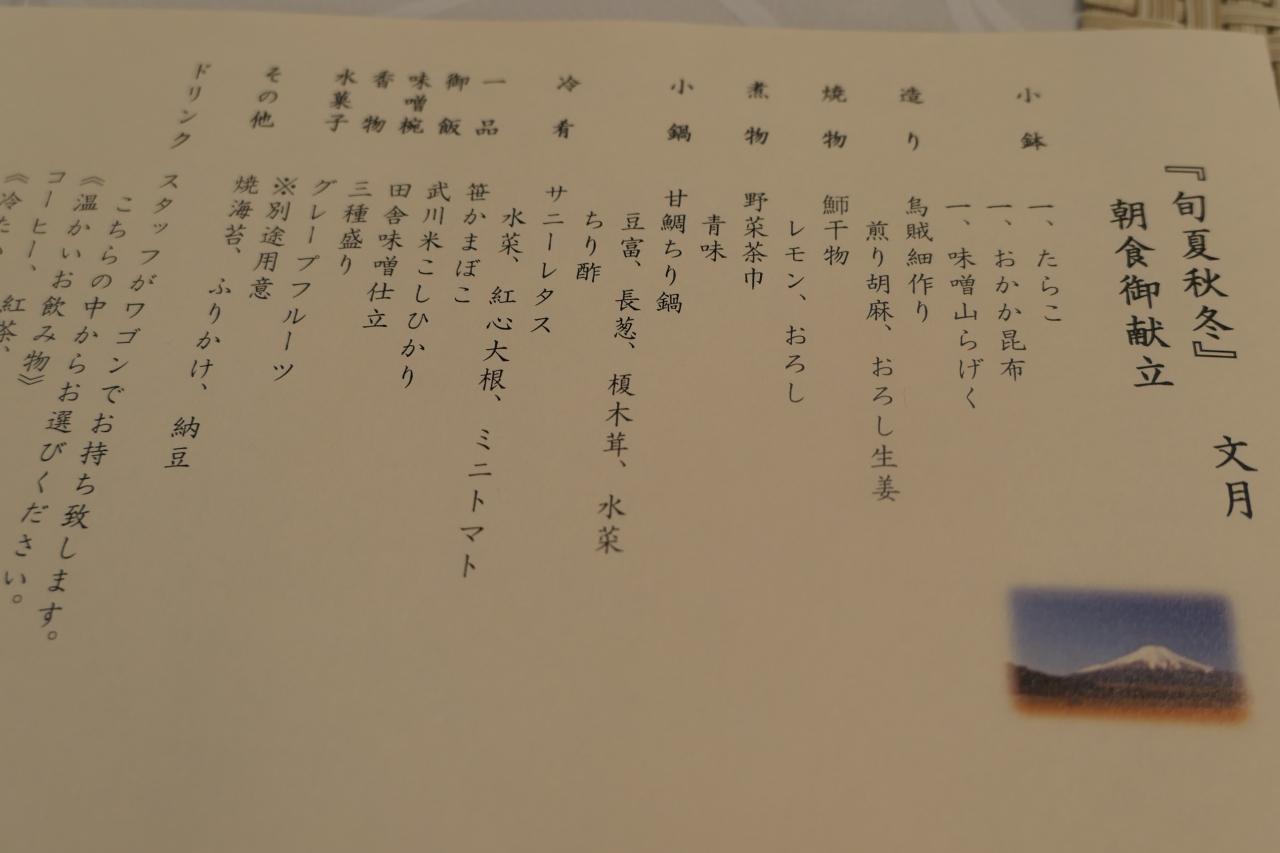 『旬夏秋冬』 文月
朝食御献立
小鉢 一、たらこ
一、おかか昆布
一、味噌山らげく
造り 烏賊細作り
煎り胡麻、おろし生姜
焼物 鰤干物
レモン、おろし
煮物 野菜茶巾
青味
小鍋 甘鯛ちり鍋
豆富、長葱、榎木茸、水菜
ちり酢
冷肴 サニーレタス
水菜、紅心大根、ミニトマト
一品 笹かまぼこ
御飯 武川米こしひかり
味噌椀 田舎味噌仕立
香物 三種盛り
水菓子 グレープフルーツ
その他 ※別途用意
焼海苔、ふりかけ、納豆
ドリンク スタッフがワゴンでお持ち致します。
こちらの中からお選びください。
《温かいお飲み物》
コーヒー、紅茶、
《冷たい